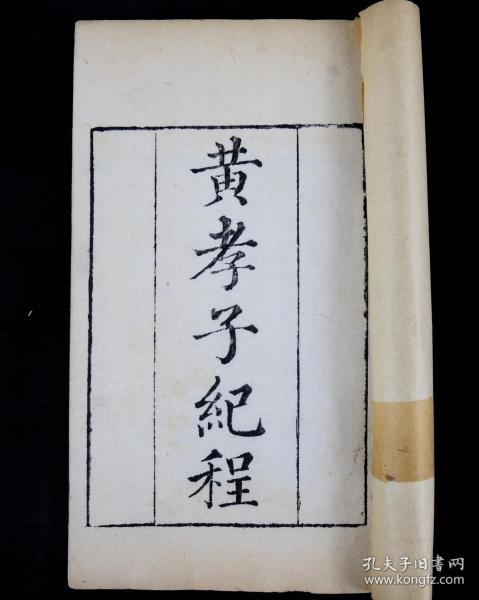 黄孝子紀程
孔夫子旧書网
www.kongfz.com